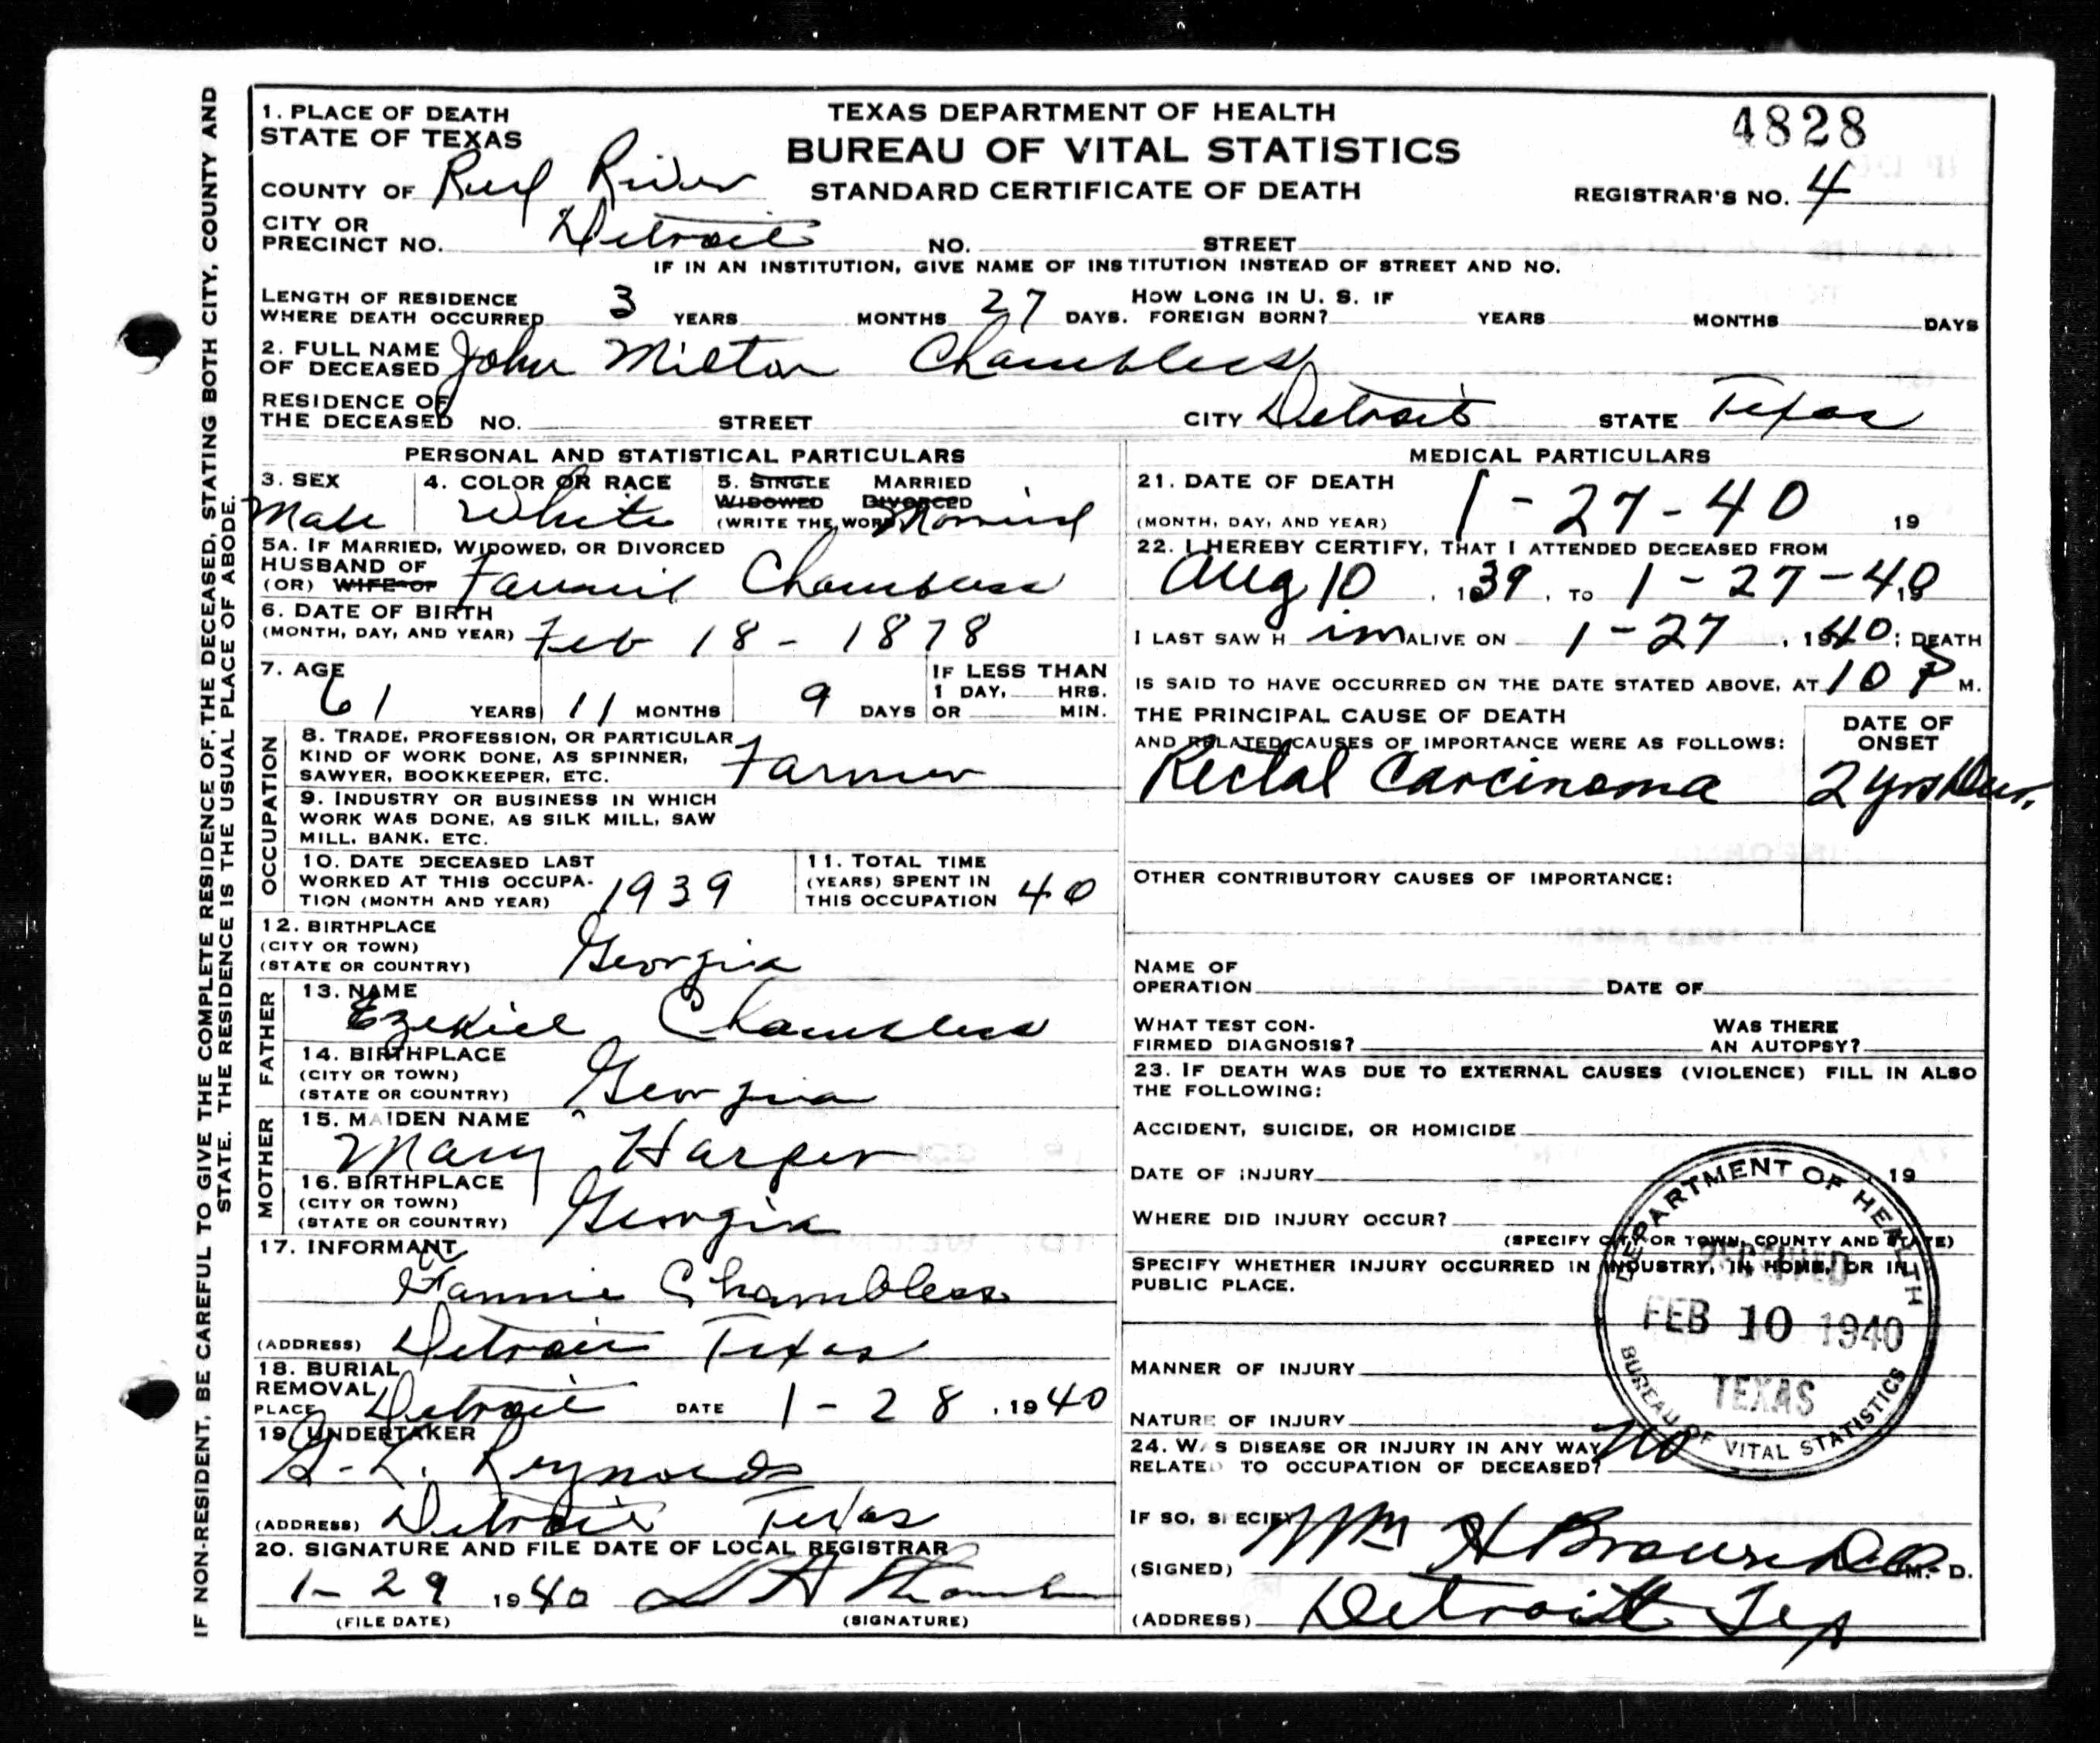 IF NON-RESIDENT, BE CAREFUL TO GIVE THE COMPLETE RESIDENCE OF THE DECEASED, STATING BOTH CITY, COUNTY AND
STATE. THE RESIDENCE IS THE USUAL PLACE OF ABODE.
1. PLACE OF DEATH
STATE OF TEXAS
TEXAS DEPARTMENT OF HEALTH
BUREAU OF VITAL STATISTICS
STANDARD CERTIFICATE OF DEATH
4828
REGISTRAR'S NO. 4
COUNTY OF Red River
CITY OR
PRECINCT NO. Detroit NO. STREET
IF IN AN INSTITUTION, GIVE NAME OF INSTITUTION INSTEAD OF STREET AND NO.
LENGTH OF RESIDENCE
WHERE DEATH OCCURRED 3 YEARS MONTHS 27 DAYS. HOW LONG IN U. S. IF
FOREIGN BORN? YEARS MONTHS DAYS
2. FULL NAME
OF DECEASED John Milton Chambless
RESIDENCE OF
THE DECEASED NO. STREET CITY Detroit STATE Texas
PERSONAL AND STATISTICAL PARTICULARS
3. SEX
Male
4. COLOR OR RACE
White
5. SINGLE MARRIED
WIDOWED DIVORCED
(WRITE THE WORD) Married
5A. IF MARRIED, WIDOWED, OR DIVORCED
HUSBAND OF
(OR) WIFE OF Fannie Chambless
6. DATE OF BIRTH
(MONTH, DAY, AND YEAR) Feb 18 - 1878
7. AGE
61 YEARS 11 MONTHS 9 DAYS
IF LESS THAN
1 DAY, HRS.
OR MIN.
OCCUPATION
8. TRADE, PROFESSION, OR PARTICULAR
KIND OF WORK DONE, AS SPINNER,
SAWYER, BOOKKEEPER, ETC. Farmer
9. INDUSTRY OR BUSINESS IN WHICH
WORK WAS DONE, AS SILK MILL, SAW
MILL, BANK, ETC.
10. DATE DECEASED LAST
WORKED AT THIS OCCUPA-
TION (MONTH AND YEAR) 1939
11. TOTAL TIME
(YEARS) SPENT IN
THIS OCCUPATION 40
12. BIRTHPLACE
(CITY OR TOWN)
(STATE OR COUNTRY) Georgia
FATHER
13. NAME
Ezekiel Chambless
14. BIRTHPLACE
(CITY OR TOWN)
(STATE OR COUNTRY) Georgia
MOTHER
15. MAIDEN NAME
Mary Harper
16. BIRTHPLACE
(CITY OR TOWN)
(STATE OR COUNTRY) Georgia
17. INFORMANT
Fannie Chambless
(ADDRESS) Detroit Texas
18. BURIAL
REMOVAL
PLACE Detroit DATE 1 - 28, 1940
19. UNDERTAKER
G. L. Reynolds
(ADDRESS) Detroit Texas
20. SIGNATURE AND FILE DATE OF LOCAL REGISTRAR
1 - 29 1940
(FILE DATE) (SIGNATURE)
MEDICAL PARTICULARS
21. DATE OF DEATH
(MONTH, DAY, AND YEAR) 1 - 27 - 40 19
22. I HEREBY CERTIFY, THAT I ATTENDED DECEASED FROM
Aug 10, 1939, TO 1 - 27 - 40 19
I LAST SAW H im ALIVE ON 1 - 27, 1940; DEATH
IS SAID TO HAVE OCCURRED ON THE DATE STATED ABOVE, AT 10 P M.
THE PRINCIPAL CAUSE OF DEATH
AND RELATED CAUSES OF IMPORTANCE WERE AS FOLLOWS:
DATE OF
ONSET
Rectal Carcinoma 2 yrs Dur.
OTHER CONTRIBUTORY CAUSES OF IMPORTANCE:
NAME OF
OPERATION DATE OF
WHAT TEST CON-
FIRMED DIAGNOSIS? WAS THERE
AN AUTOPSY?
23. IF DEATH WAS DUE TO EXTERNAL CAUSES (VIOLENCE) FILL IN ALSO
THE FOLLOWING:
ACCIDENT, SUICIDE, OR HOMICIDE
DATE OF INJURY 19
WHERE DID INJURY OCCUR?
(SPECIFY CITY OR TOWN, COUNTY AND STATE)
SPECIFY WHETHER INJURY OCCURRED IN INDUSTRY, IN HOME, OR IN
PUBLIC PLACE.
MANNER OF INJURY
NATURE OF INJURY
24. WAS DISEASE OR INJURY IN ANY WAY
RELATED TO OCCUPATION OF DECEASED? No
IF SO, SPECIFY
(SIGNED) Wm H Brown D.O. M. D.
(ADDRESS) Detroit Tex
DEPARTMENT OF HEALTH
RECEIVED
FEB 10 1940
TEXAS
BUREAU OF VITAL STATISTICS